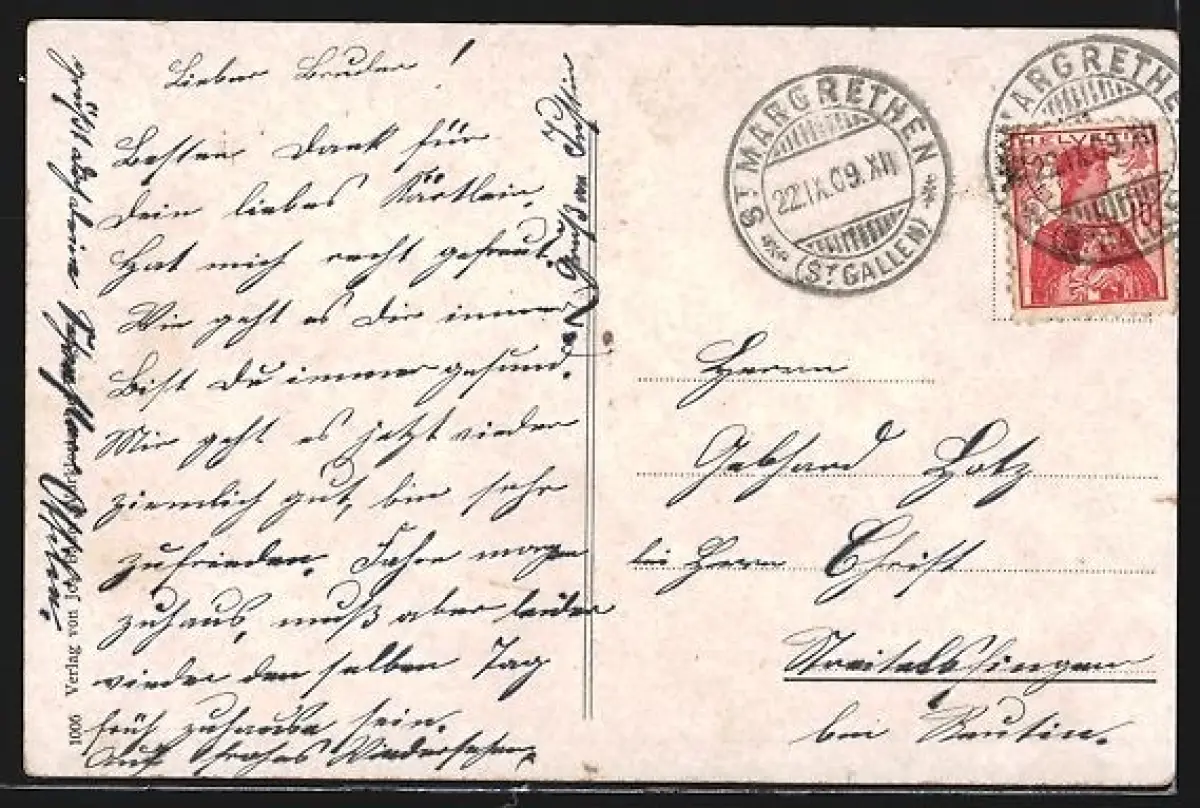 Lieber Bruder!
Besten Dank für
Dein liebes Kärtlein.
Hat mich recht gefreut.
Wie geht es Dir immer
Bist Du immer gesund.
Mir geht es jetzt wieder
ziemlich gut, bin sehr
zufrieden. Fahre morgen
zuhaus, muß aber leider
wieder den selben Tag
früh zuhause sein.
Auf frohes Wiedersehen,
grüßt
1006 Verlag von
ST MARGRETHEN
22.IX.09.XII
(ST GALLEN)
ST MARGRETHEN
22.IX.09.XII
HELVETIA
10
Herrn
Gebhard Lotz
bei Herrn Christ
bei